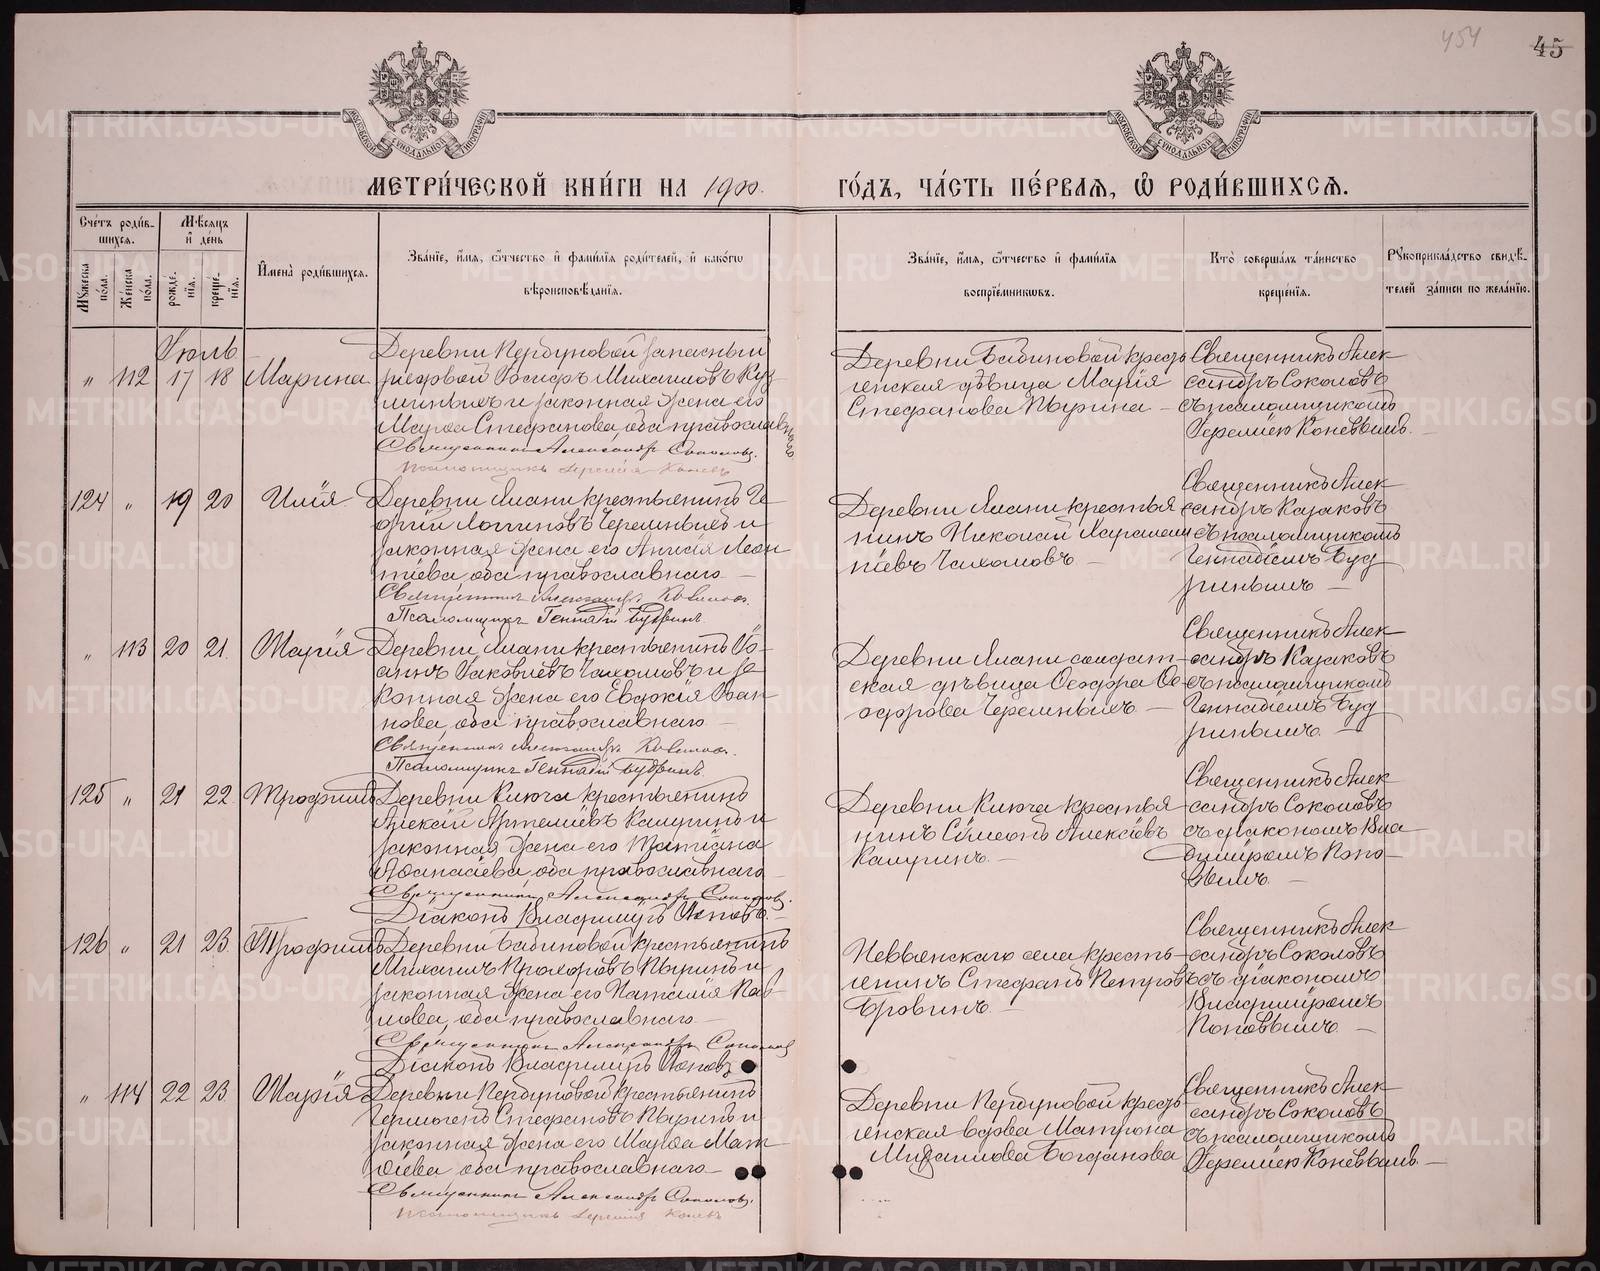 454
45
МЕТРИ́ЧЕСКОЙ КНИ́ГИ НА 1900.
ГО́ДЪ, ЧА́СТЬ ПЕ́РВАѦ, Ѡ҆ РОДИ́ВШИХСѦ.
Сче́тъ роди́в-
шихсѧ.
Мѣ́сѧцъ
и҆ де́нь
Мꙋ́жеска по́ла.
Же́нска по́ла.
рожде́-
нїѧ.
креще́-
нїѧ.
И҆мена̀ роди́вшихсѧ.
Зва́нїе, и҆́мѧ, ѻ҆́тчество и҆ фами́лїѧ роди́телей, и҆ како́гѡ
вѣроисповѣ́данїѧ.
Зва́нїе, и҆́мѧ, ѻ҆́тчество и҆ фами́лїѧ
воспрїе́мниковъ.
Кто̀ соверша́лъ та́инство
креще́нїѧ.
Рꙋкоприкла́дство свидѣ́-
телей за́писи по жела́нїю.
Іюль
„ 112 17 18 Марина
Деревни Кербуновой запасный
рядовой Іосифъ Михаиловъ Куз-
миныхъ и законная жена его
Марѳа Стефанова, оба православнаго
Священникъ Александръ Соколовъ.
Псаломщикъ Іеремія Коневъ
Деревни Бабиновой кресть
янская дѣвица Марія
Стефанова Пырина —
Священникъ Алек
сандръ Соколовъ
съ псаломщикомъ
Іереміею Коневымъ. —
124 „ 19 20 Илія
Деревни Ялани крестьянинъ Ге
оргій Логиновъ Черемныхъ и
законная жена его Анисія Леон
тіева, оба православнаго —
Священникъ Александръ Казаковъ.
Псаломщикъ Геннадій Будринъ
Деревни Ялани крестья
нинъ Николай Харламп
піевъ Чахомовъ —
Священникъ Алек
сандръ Казаковъ
съ псаломщикомъ
Геннадіемъ Буд
ринымъ —
„ 113 20 21. Марія
Деревни Ялани крестьянинъ Іо-
аннъ Іаковлевъ Чахомовъ и за
конная жена его Евдокія Іоан
нова, оба православнаго —
Священникъ Александръ Казаковъ.
Псаломщикъ Геннадій Будринъ.
Деревни Ялани солдат-
ская дѣвица Ѳеодора Ѳе-
одорова Черемныхъ —
Священникъ Алек
сандръ Казаковъ
съ псаломщикомъ
Геннадіемъ Буд
ринымъ. —
125 „ 21 22. Трофимъ
Деревни Ключа крестьянинъ
Алексій Артеміевъ Калугинъ и
законная жена его Татіана
Аѳанасіева, оба православнаго
Священникъ Александръ Соколовъ.
Діаконъ Владиміръ Поповъ. —
Деревни Ключа крестья
нинъ Сѵмеонъ Алексіевъ
Калугинъ. —
Священникъ Алек
сандръ Соколовъ
съ діакономъ Вла
диміромъ Попо-
вымъ. —
126 „ 21 23. Трофимъ
Деревни Бабиновой крестьянинъ
Михаилъ Прохоровъ Пыринъ и
законная жена его Наталія Пав-
лова, оба православнаго —
Священникъ Александръ Соколовъ
Діаконъ Владиміръ Поповъ
Невьянскаго села кресть-
янинъ Стефанъ Петровъ
Бровинъ. —
Священникъ Алек
сандръ Соколовъ
съ діакономъ
Владиміромъ
Поповымъ —
„ 114 22 23. Марія
Деревни Кербуновой крестьянинъ
Гермогенъ Стефановъ Пыринъ и
законная жена его Марѳа Мат
ѳіева, оба православнаго —
Священникъ Александръ Соколовъ.
Псаломщикъ Іеремія Коневъ
Деревни Кербуновой кресть
янская вдова Матрона
Михаилова Богданова
Священникъ Алек
сандръ Соколовъ
съ псаломщикомъ
Іереміею Коневымъ. —